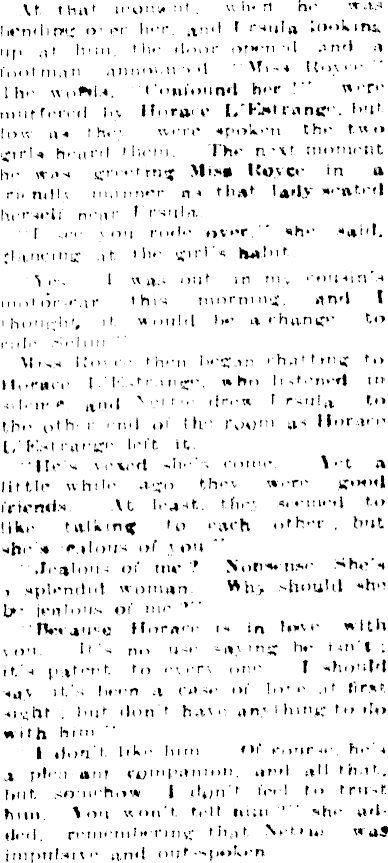 At that moment, when he was
bending over her, and Ursula looking
up at him, the door opened and a
footman announced "Miss Royce."
The words, "Confound her!" were
muttered by Horace L'Estrange, but
low as they were spoken the two
girls heard them. The next moment
he was greeting Miss Royce in a
friendly manner as that lady seated
herself near Ursula.
"I see you rode over," she said,
glancing at the girl's habit.
"Yes. I was out in my cousin's
motor-car this morning, and I
thought it would be a change to
ride Selim."
Miss Royce then began chatting to
Horace L'Estrange, who listened in
silence, and Nettie drew Ursula to
the other end of the room as Horace
L'Estrange left it.
"He's vexed she's come. Yet a
little while ago they were good
friends. At least, they seemed to
like talking to each other, but
she's jealous of you."
"Jealous of me? Nonsense. She's
a splendid woman. Why should she
be jealous of me?"
"Because Horace is in love with
you. It's no use saying he isn't;
it's patent to every one. I should
say it's been a case of love at first
sight; but don't have anything to do
with him."
"I don't like him. Of course, he's
a pleasant companion, and all that,
but somehow I don't feel to trust
him. You won't tell him?" she ad-
ded, remembering that Nettie was
impulsive and outspoken.